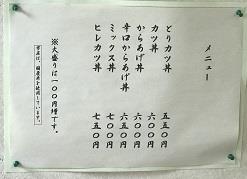 メニュー
とりカツ丼 五五〇円
カツ丼 六〇〇円
からあげ丼 六〇〇円
辛口からあげ丼 六五〇円
ミックス丼 七〇〇円
ヒレカツ丼 七五〇円
※大盛りは一〇〇円増です。
当店は、国産米を使用しています。